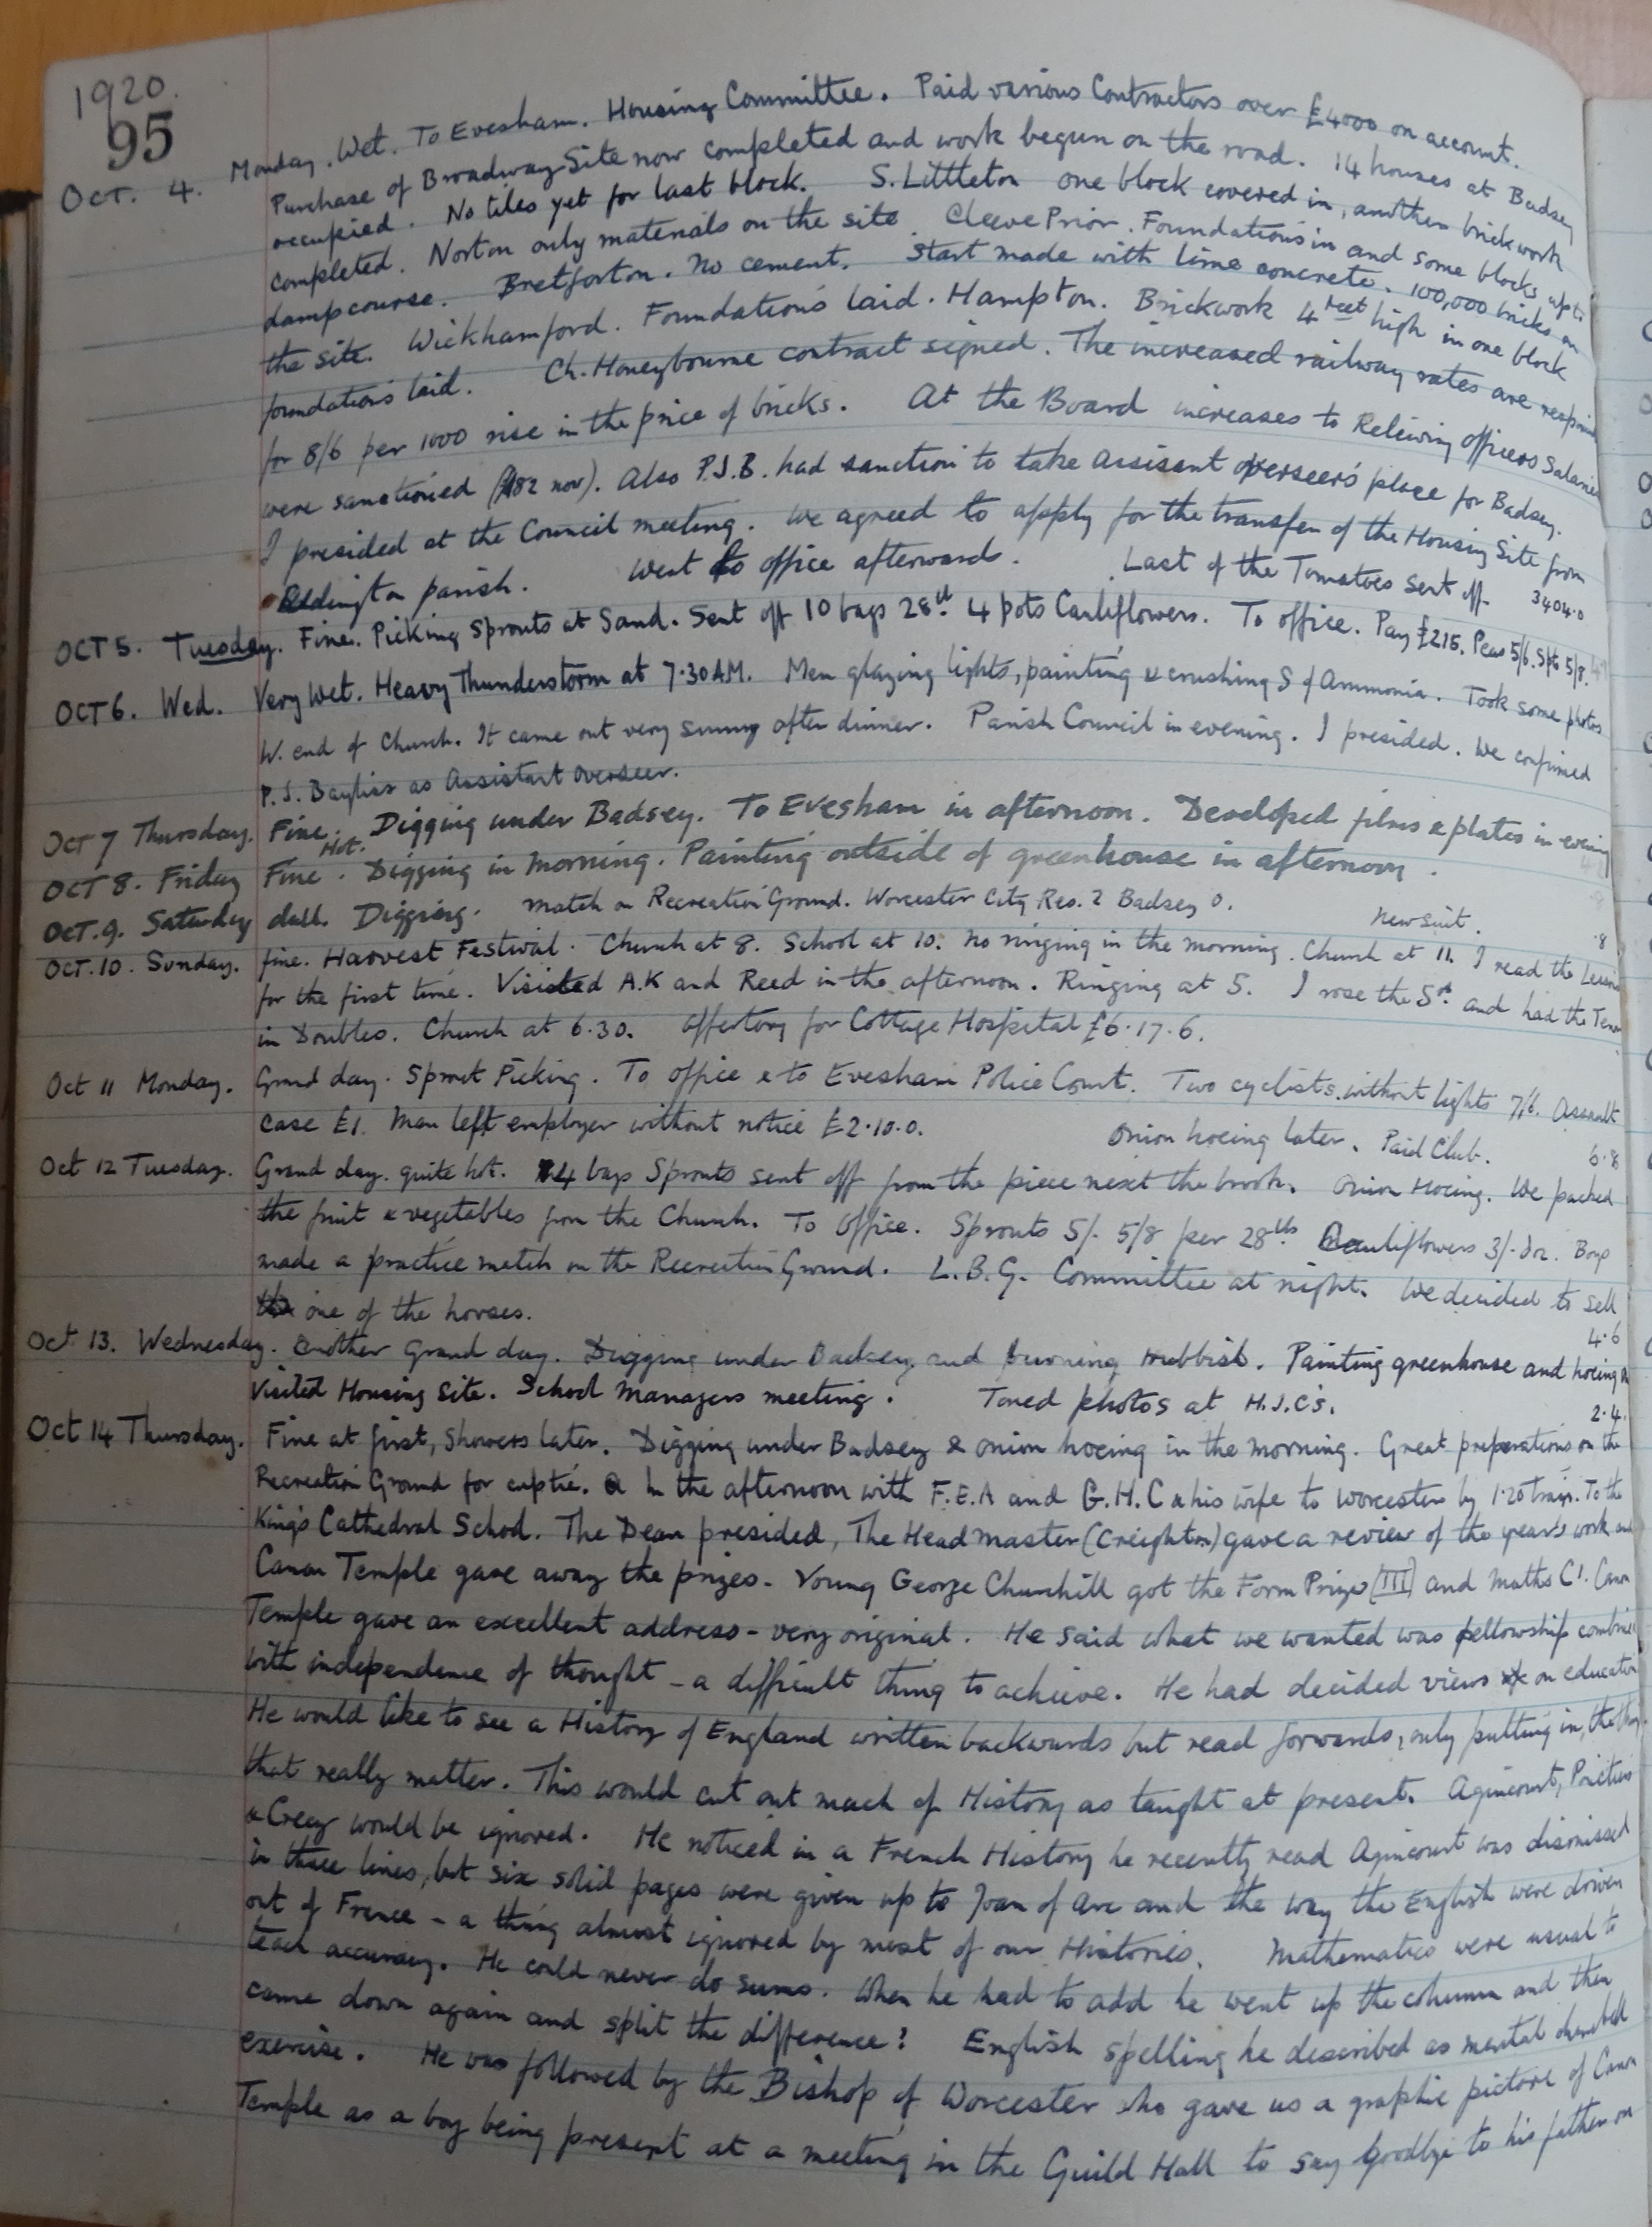 1920.
95
Oct. 4. Monday. Wet. To Evesham. Housing Committee. Paid various Contractors over £4000 on account.
Purchase of Broadway Site now completed and work begun on the road. 14 houses at Badsey
occupied. No tiles yet for last block. S. Littleton one block covered in, another brickwork
completed. Norton only materials on the site. Cleeve Prior. Foundations in and some blocks up to
dampcourse. Bretforton. No cement. Start made with lime concrete. 100,000 bricks on
the site. Wickhamford. Foundations laid. Hampton. Brickwork 4 feet high in one block
foundations laid. Ch. Honeybourne contract signed. The increased railway rates are
for 8/6 per 1000 rise in the price of bricks. At the Board increases to Relieving officers Salaries
were sanctioned (182 now). Also P.J.B. had sanction to take Assisant overseer's place for Badsey.
I presided at the Council meeting. We agreed to apply for the transfer of the Housing Site from
Aldington parish. Went to office afterwards. Last of the Tomatoes sent off 3404.0
OCT 5. Tuesday. Fine. Picking Sprouts at Sand. Sent off 10 bags 28 4 pots Cauliflowers. To office. Pay £215. Peas 5/6. Spts 5/8.
OCT 6. Wed. Very Wet. Heavy Thunderstorm at 7.30 AM. Men glazing lights, painting & crushing S of Ammonia. Took some photos
W. end of Church. It came out very sunny after dinner. Parish Council in evening. I presided. We confirmed
P.J. Bayliss as Assistant Overseer.
Oct 7 Thursday. Fine. Digging under Badsey. To Evesham in afternoon. Developed films & plates in evening
OCT 8. Friday Fine. Hot. Digging in morning. Painting outside of greenhouse in afternoon.
OCT. 9. Saturday dull. Digging. Match on Recreation Ground. Worcester City Res. 2 Badsey 0. New suit. .8
OCT. 10. Sunday. fine. Harvest Festival. Church at 8. School at 10. No ringing in the morning. Church at 11. I read the Lessons
for the first time. Visited A.K and Reed in the afternoon. Ringing at 5. I rose the 5th and had the Tenor
in Doubles. Church at 6.30. Offertory for Cottage Hospital £6.17.6.
Oct 11 Monday. Grand day. Sprout Picking. To office & to Evesham Police Court. Two cyclists without lights 7/6. Assault
case £1. Man left employer without notice £2.10.0. Onion hoeing later. Paid Club. 6.8
Oct 12 Tuesday. Grand day. quite hot. 14 bags Sprouts sent off from the piece next the brook. Onion Hoeing. We packed
the fruit & vegetables from the Church. To Office. Sprouts 5/- 5/8 per 28lbs Cauliflowers 3/- doz. Boys
made a practice match on the Recreation Ground. L.B.G. Committee at night. We decided to sell
one of the horses. 4.6
Oct 13. Wednesday. Another Grand day. Digging under Badsey and burning rubbish. Painting greenhouse and hoeing
Visited Housing Site. School Managers meeting. Toned photos at H.J.C's. 2.4.
Oct 14 Thursday. Fine at first, Showers later. Digging under Badsey & onion hoeing in the morning. Great preparations on the
Recreation Ground for cuptie. In the afternoon with F.E.A and G.H.C & his wife to Worcester by 1.20 train. To the
Kings Cathedral School. The Dean presided, The Headmaster (Creighton) gave a review of the year's work and
Canon Temple gave away the prizes. Young George Churchill got the Form Prize [III] and Maths C1. Canon
Temple gave an excellent address - very original. He said what we wanted was fellowship combined
with independence of thought - a difficult thing to achieve. He had decided views on education
He would like to see a History of England written backwards but read forwards, only putting in the things
that really matter. This would cut out much of History as taught at present. Agincourt, Poictiers
& Crecy would be ignored. He noticed in a French History he recently read Agincourt was dismissed
in three lines, but six solid pages were given up to Joan of Arc and the way the English were driven
out of France - a thing almost ignored by most of our Histories. Mathematics were usual to
teach accuracy. He could never do sums. When he had to add he went up the column and then
came down again and split the difference! English spelling he described as mental dumbbell
exercise. He was followed by the Bishop of Worcester who gave us a graphic picture of Canon
Temple as a boy being present at a meeting in the Guild Hall to say goodbye to his father on